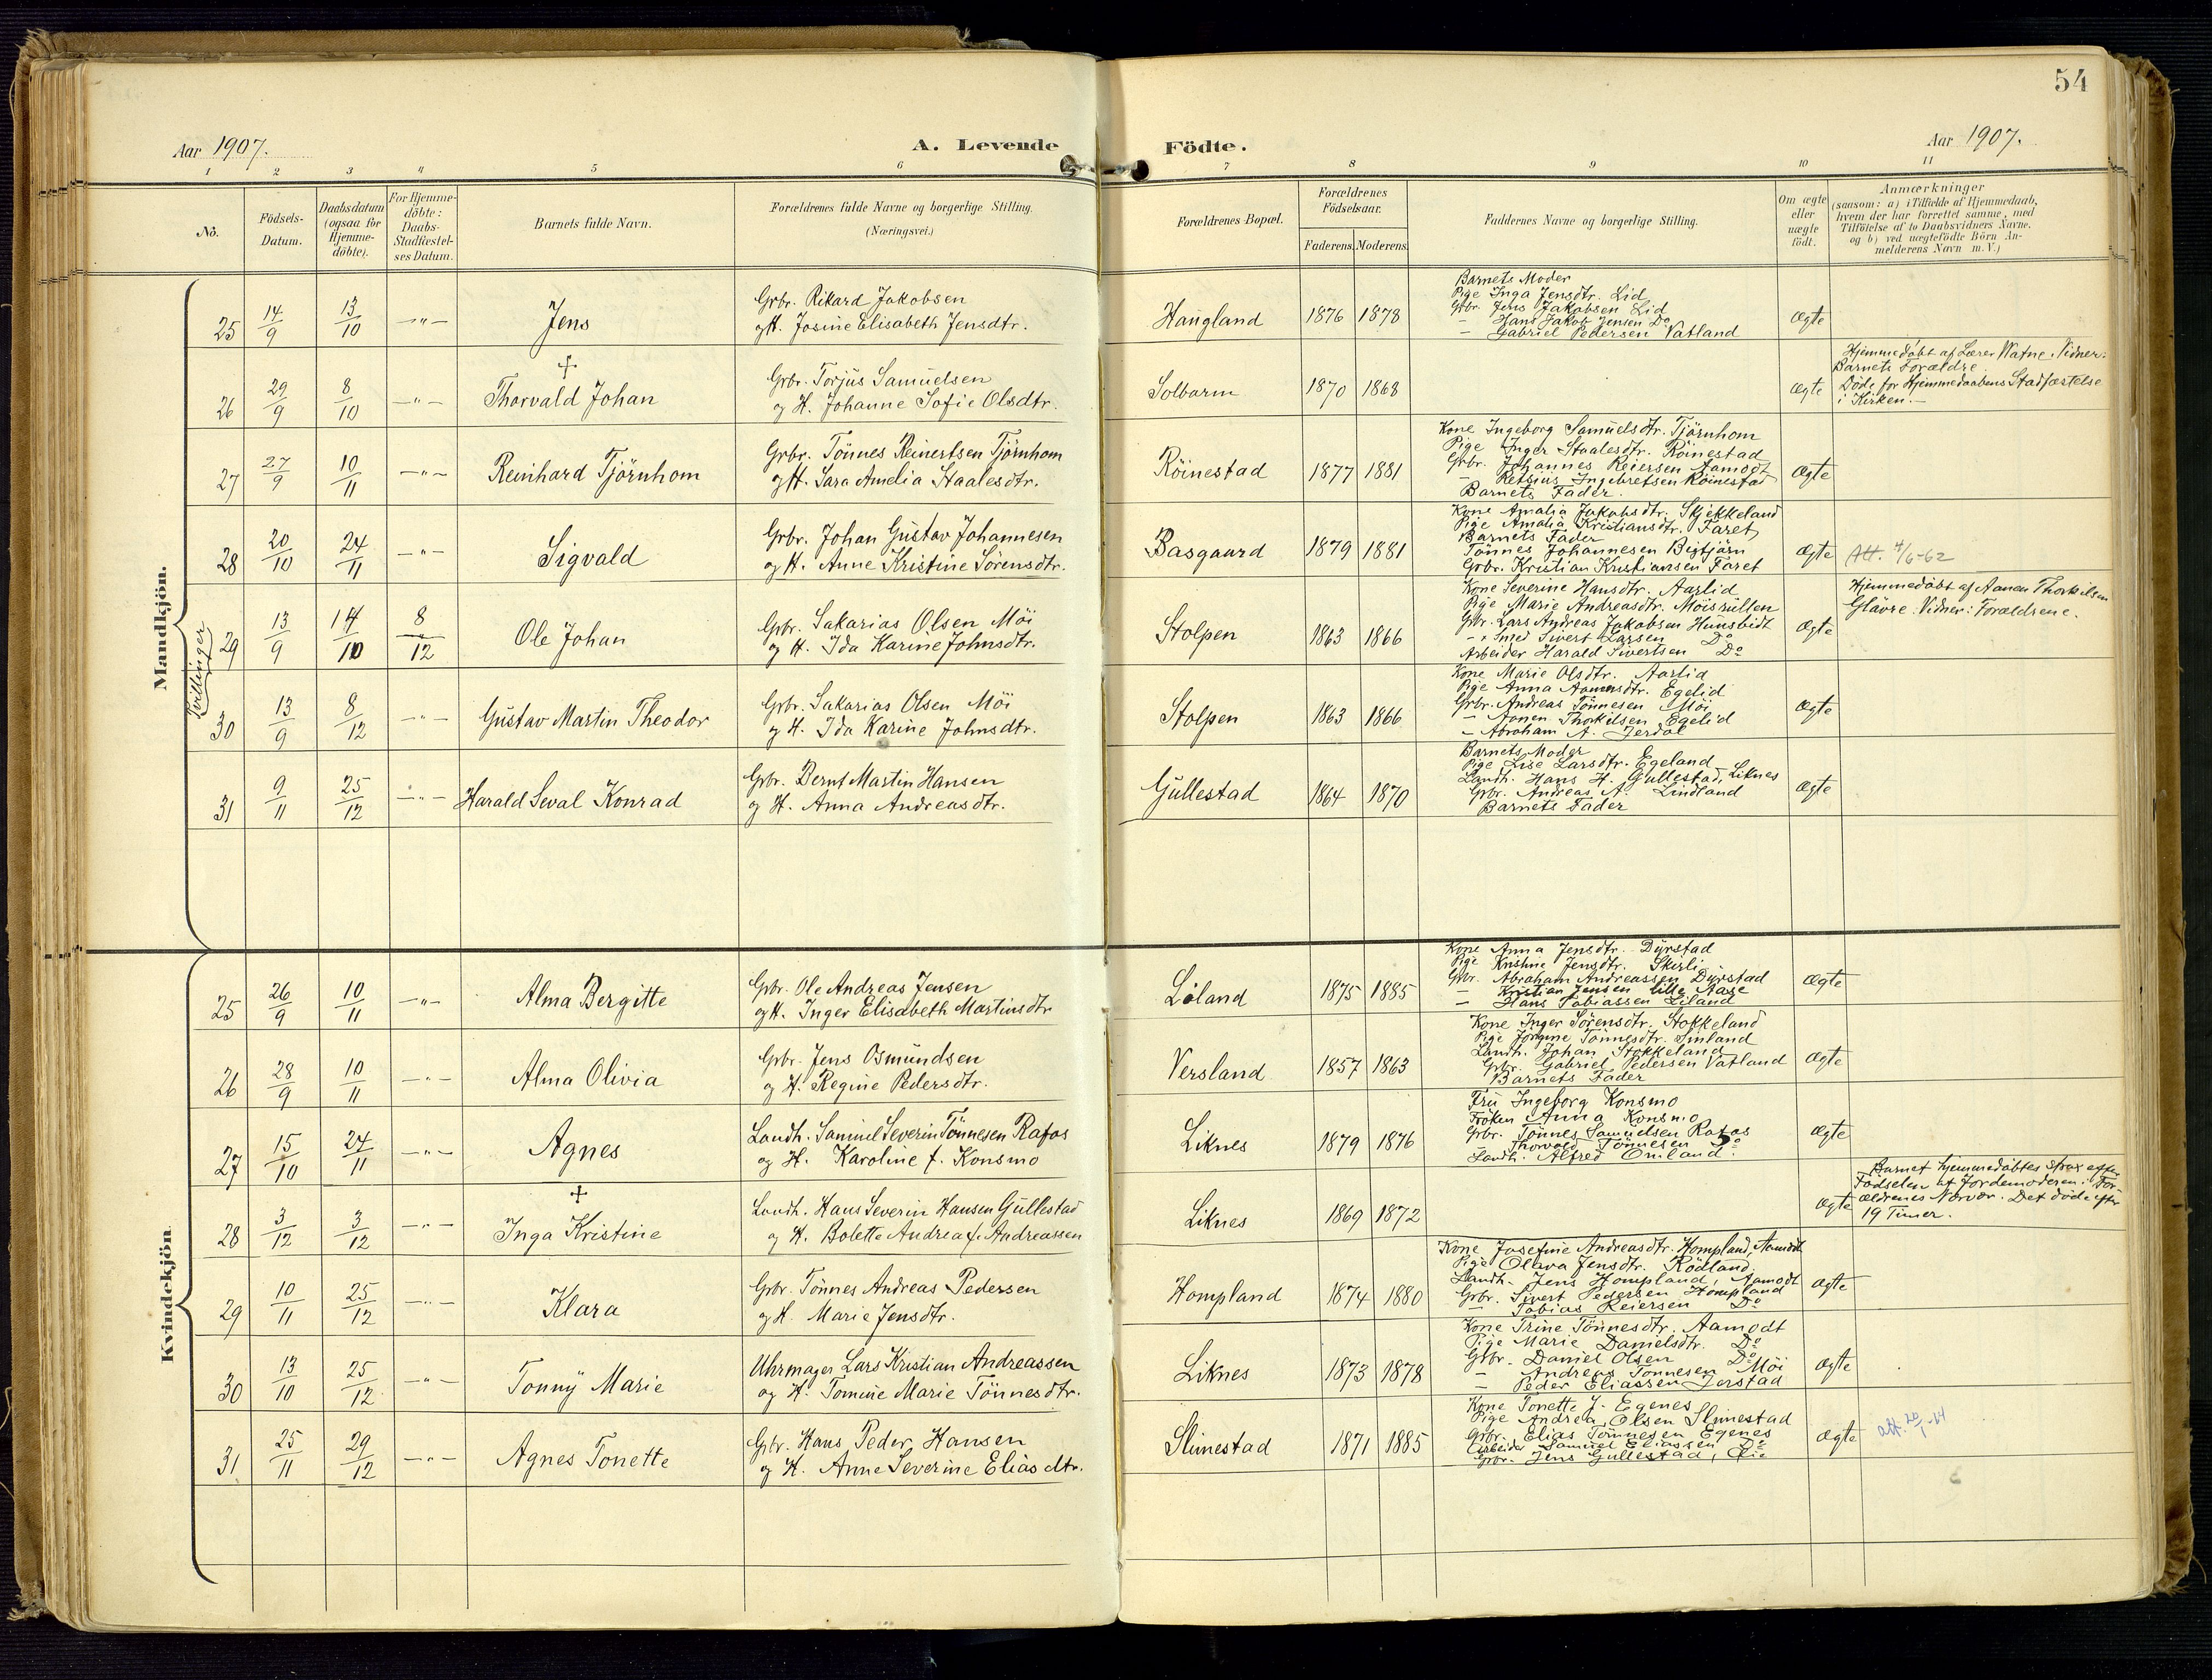 54
Aar 1907.
A. Levende Födte.
Aar 1907.
1 2 3 4 5 6 7 8 9 10 11
No.
Födsels-Datum.
Daabsdatum (ogsaa for Hjemme-döbte).
For Hjemme-döbte: Daabs-Stadfæstel-ses Datum.
Barnets fulde Navn.
Forældrenes fulde Navne og borgerlige Stilling. (Næringsvei.)
Forældrenes Bopæl.
Forældrenes Födselsaar.
Faderens. Moderens.
Faddernes Navne og borgerlige Stilling.
Om ægte eller uægte født.
Anmærkninger
(saasom: a) i Tilfælde af Hjemmedaab, hvem der har forrettet samme, med Tilföielse af to Daabsvidners Navne, og b) ved uægtefödte Börn An-melderens Navn m. V.)
Mandkjön.
25 14/9 13/10 —"— Jens
Grbr. Rikard Jakobsen
og H. Josine Elisabeth Jensdtr.
Haugland 1876 1878
Barnets Moder
Pige Inga Jensdtr. Lid
Grbr. Jens Jakobsen Lid
— Hans Jakob Jensen Do
— Gabriel Pedersen Vatland
Ægte
26 29/9 8/10 —"— + Thorvald Johan
Grbr. Torjus Samuelsen
og H. Johanne Sofie Olsdtr.
Solbarm 1870 1868
Ægte
Hjemmedøbt af Lærer Watne. Vidner:
Barnets Forældre.
Döde før Hjemmedaabens Stadfæstelse
i Kirken.—
27 27/9 10/11 —"— Reinhard Tjörnhom
Grbr. Tönnes Reinertsen Tjörnhom
og H. Sara Amelia Staalesdtr.
Röinestad 1877 1881
Kone Ingeborg Samuelsdtr. Tjörnhom
Pige Inger Staalesdtr. Röinestad
Grbr. Johannes Reiersen Aamodt
— Retsius Ingebretsen Röinestad
Barnets Fader.
Ægte
28 20/10 24/11 —"— Sigvald
Grbr. Johan Gustav Johannesen
og H. Anne Kristine Sörensdtr.
Basgaard 1879 1881
Kone Amalia Jakobsdtr. Skjekkeland
Pige Amalia Kristiansdtr. Faret
Barnets Fader
Tönnes Johannesen Bigtjörn
Grbr. Kristian Kristiansen Faret
Ægte Att. 4/6-62
Tvillinger
29 13/9 14/10 8/12 Ole Johan
Grbr. Sakarias Olsen Möi
og H. Ida Karine Johnsdtr.
Stolpen 1863 1866
Kone Severine Hansdtr. Aarlid
Pige Marie Andreasdtr. Möisrullen
Grbr. Lars Andreas Jakobsen Hunsbidt
— Smed Sivert Larsen Do
Arbeider Harald Sivertsen Do
Ægte
Hjemmedöbt af Aanen Thorkilsen
Glövre. Vidner: Forældrene.
30 13/9 8/12 —"— Gustav Martin Theodor
Grbr. Sakarias Olsen Möi
og H. Ida Karine Johnsdtr.
Stolpen 1863 1866
Kone Marie Olsdtr. Aarlid
Pige Anna Aanensdtr. Egelid
Grbr. Andreas Tönnesen Möi
— Aanen Thorkilsen Egelid
— Abraham A. Jerdal
Ægte
31 9/11 25/12 —"— Harald Seval Konrad
Grbr. Bernt Martin Hansen
og H. Anna Andreasdtr.
Gullestad 1864 1870
Barnets Moder
Pige Lise Larsdtr. Egeland
Landh. Hans H. Gullestad, Liknes
Grbr. Andreas A. Lindland
Barnets Fader
Ægte
Kvindekjön
25 26/9 10/11 —"— Alma Bergitte
Grbr. Ole Andreas Jensen
og H. Inger Elisabeth Martinsdtr
Löland 1875 1885
Kone Anna Jensdtr. Dyrstad
Pige Kristine Jensdtr. Skirli
Grbr. Abraham Andreassen Dyrstad
— Kristian Jensen lille Aase
— Hans Tobiassen Liland
Ægte
26 28/9 10/11 —"— Alma Olivia
Grbr. Jens Osmundsen
og H. Regine Pedersdtr.
Versland 1857 1863
Kone Inger Sörensdtr. Stokkeland
Pige Jörgine Tönnesdtr. Sinland
Landh. Johan Stokkeland
Grbr. Gabriel Pedersen Vatland
Barnets Fader
Ægte
27 15/10 24/11 —"— Agnes
Landh. Samuel Severin Tönnesen Rafos
og H. Karoline f. Konsmo
Liknes 1879 1876
Fru Ingeborg Konsmo
Fröken Anna Konsmo
Grbr. Tönnes Samuelsen Rafos
Thorvald Tönnesen Do
Landh. Alfred Omland.
Ægte
28 3/12 3/12 —"— + Inga Kristine
Landh. Hans Severin Hansen Gullestad
og H. Bolette Andrea f. Andreassen
Liknes 1869 1872
Ægte
Barnet hjemmedöbtes strax efter
Födselen af Jordemoderen i For-
ældrenes Nærvær. Det döde efter
19 Timer.
29 10/11 25/12 —"— Klara
Grbr. Tönnes Andreas Pedersen
og H. Marie Jensdtr.
Hompland 1874 1880
Kone Josefine Andreasdtr. Hompland, Aamodt
Pige Olava Jensdtr. Rödland.
Landh. Jens Hompland, Aamodt
Grbr. Sivert Pedersen Hompland
— Tobias Reiersen Do
Ægte
30 13/10 25/12 —"— Tonny Marie
Uhrmager Lars Kristian Andreassen
og H. Tomine Marie Tönnesdtr.
Liknes 1873 1878
Kone Trine Tönnesdtr. Aamodt
Pige Marie Danielsdtr. Do
Grbr. Daniel Olsen Do
— Andreas Tönnesen Möi
— Peder Eliassen Jerstad
Ægte
31 25/11 29/12 —"— Agnes Tonette
Grbr. Hans Peder Hansen
og H. Anne Severine Eliasdtr.
Slimestad 1871 1885
Kone Tonette J. Egenes
Pige Andrea Olsen Slimestad
Grbr. Elias Tönnesen Egenes
Arbeider Samuel Eliassen Do
Grbr. Jens Gullestad, Öie
Ægte att. 20/1-14